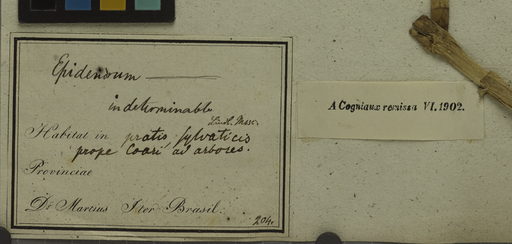 Epidendrum
indeterminable
Lindl. Msc.
Habitat in pratis sylvaticis
prope Coari, ad arbores.
Provinciae
Dr Martius Iter Brasil.
204.
A Cogniaux remissa VI. 1902.